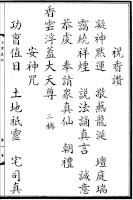 祝香讚
凝神默運　敬燕龍涎　壇庭瑞
靄結祥煙　說法誦真言　誠意
恭虔　奉請衆真仙　朝禮
香雲浮蓋大天尊　三稱
安神咒
功曹值日　土地祇靈　宅司真